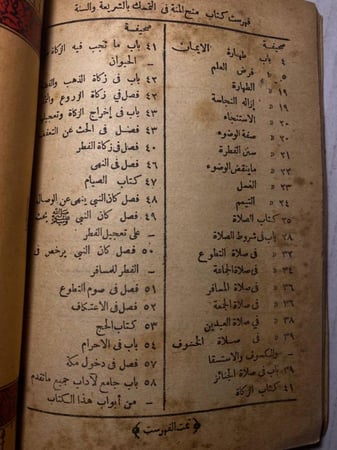 فهرست كتاب منح المنة في التمسك بالشريعة والسنة
صحيفة
٤ باب طهارة الايمان
٥ » فرض العلم
١٩ » الطهارة
١٩ » ازالة النجاسة
٢٠ » الاستنجاء
٢٠ » صفة الوضوء
٢١ » سنن الفطرة
٢٢ » ماينقض الوضوء
٢٣ » الغسل
٢٤ » التيمم
٢٥ كتاب الصلاة
٢٨ باب فى شروط الصلاة
٣٢ » فى صلاة التطوع
٣٤ » فى صلاة الجماعة
٣٦ » فى صلاة المسافر
٣٦ » فى صلاة الجمعة
٣٨ » فى صلاة العيدين
٣٩ » فى صلاة الخوف
– والكسوف والاستسقا
٣٩ باب فى صلاة الجنائز
٤١ كتاب الزكاة
صحيفة
٤١ باب ما تجب فيه الزكاة
– الحيوان
٤٢ باب فى زكاة الذهب
٤٢ فصل فى زكاة الزروع
٤٣ باب فى إخراج الزكاة
٤٣ فصل فى الحث عن
٤٤ فصل فى زكاة الفطر
٤٦ فصل فى النهى
٤٧ كتاب الصيام
٤٨ فصل كان النبي ينهى عن الوصال
٤٩ فصل كان النبي ﷺ يحث
– على تعجيل الفطر
٥٠ فصل كان النبي يرخص فى
– الفطر للمسافر
٥١ فصل فى صوم التطوع
٥٢ فصل فى الاعتكاف
٥٣ كتاب الحج
٥٤ باب فى الاحرام
٥٧ فصل فى دخول مكة
٥٨ باب جامع لآداب جميع ماتقدم
– من أبواب هذا الكتاب
﴿ تمت الفهرست ﴾